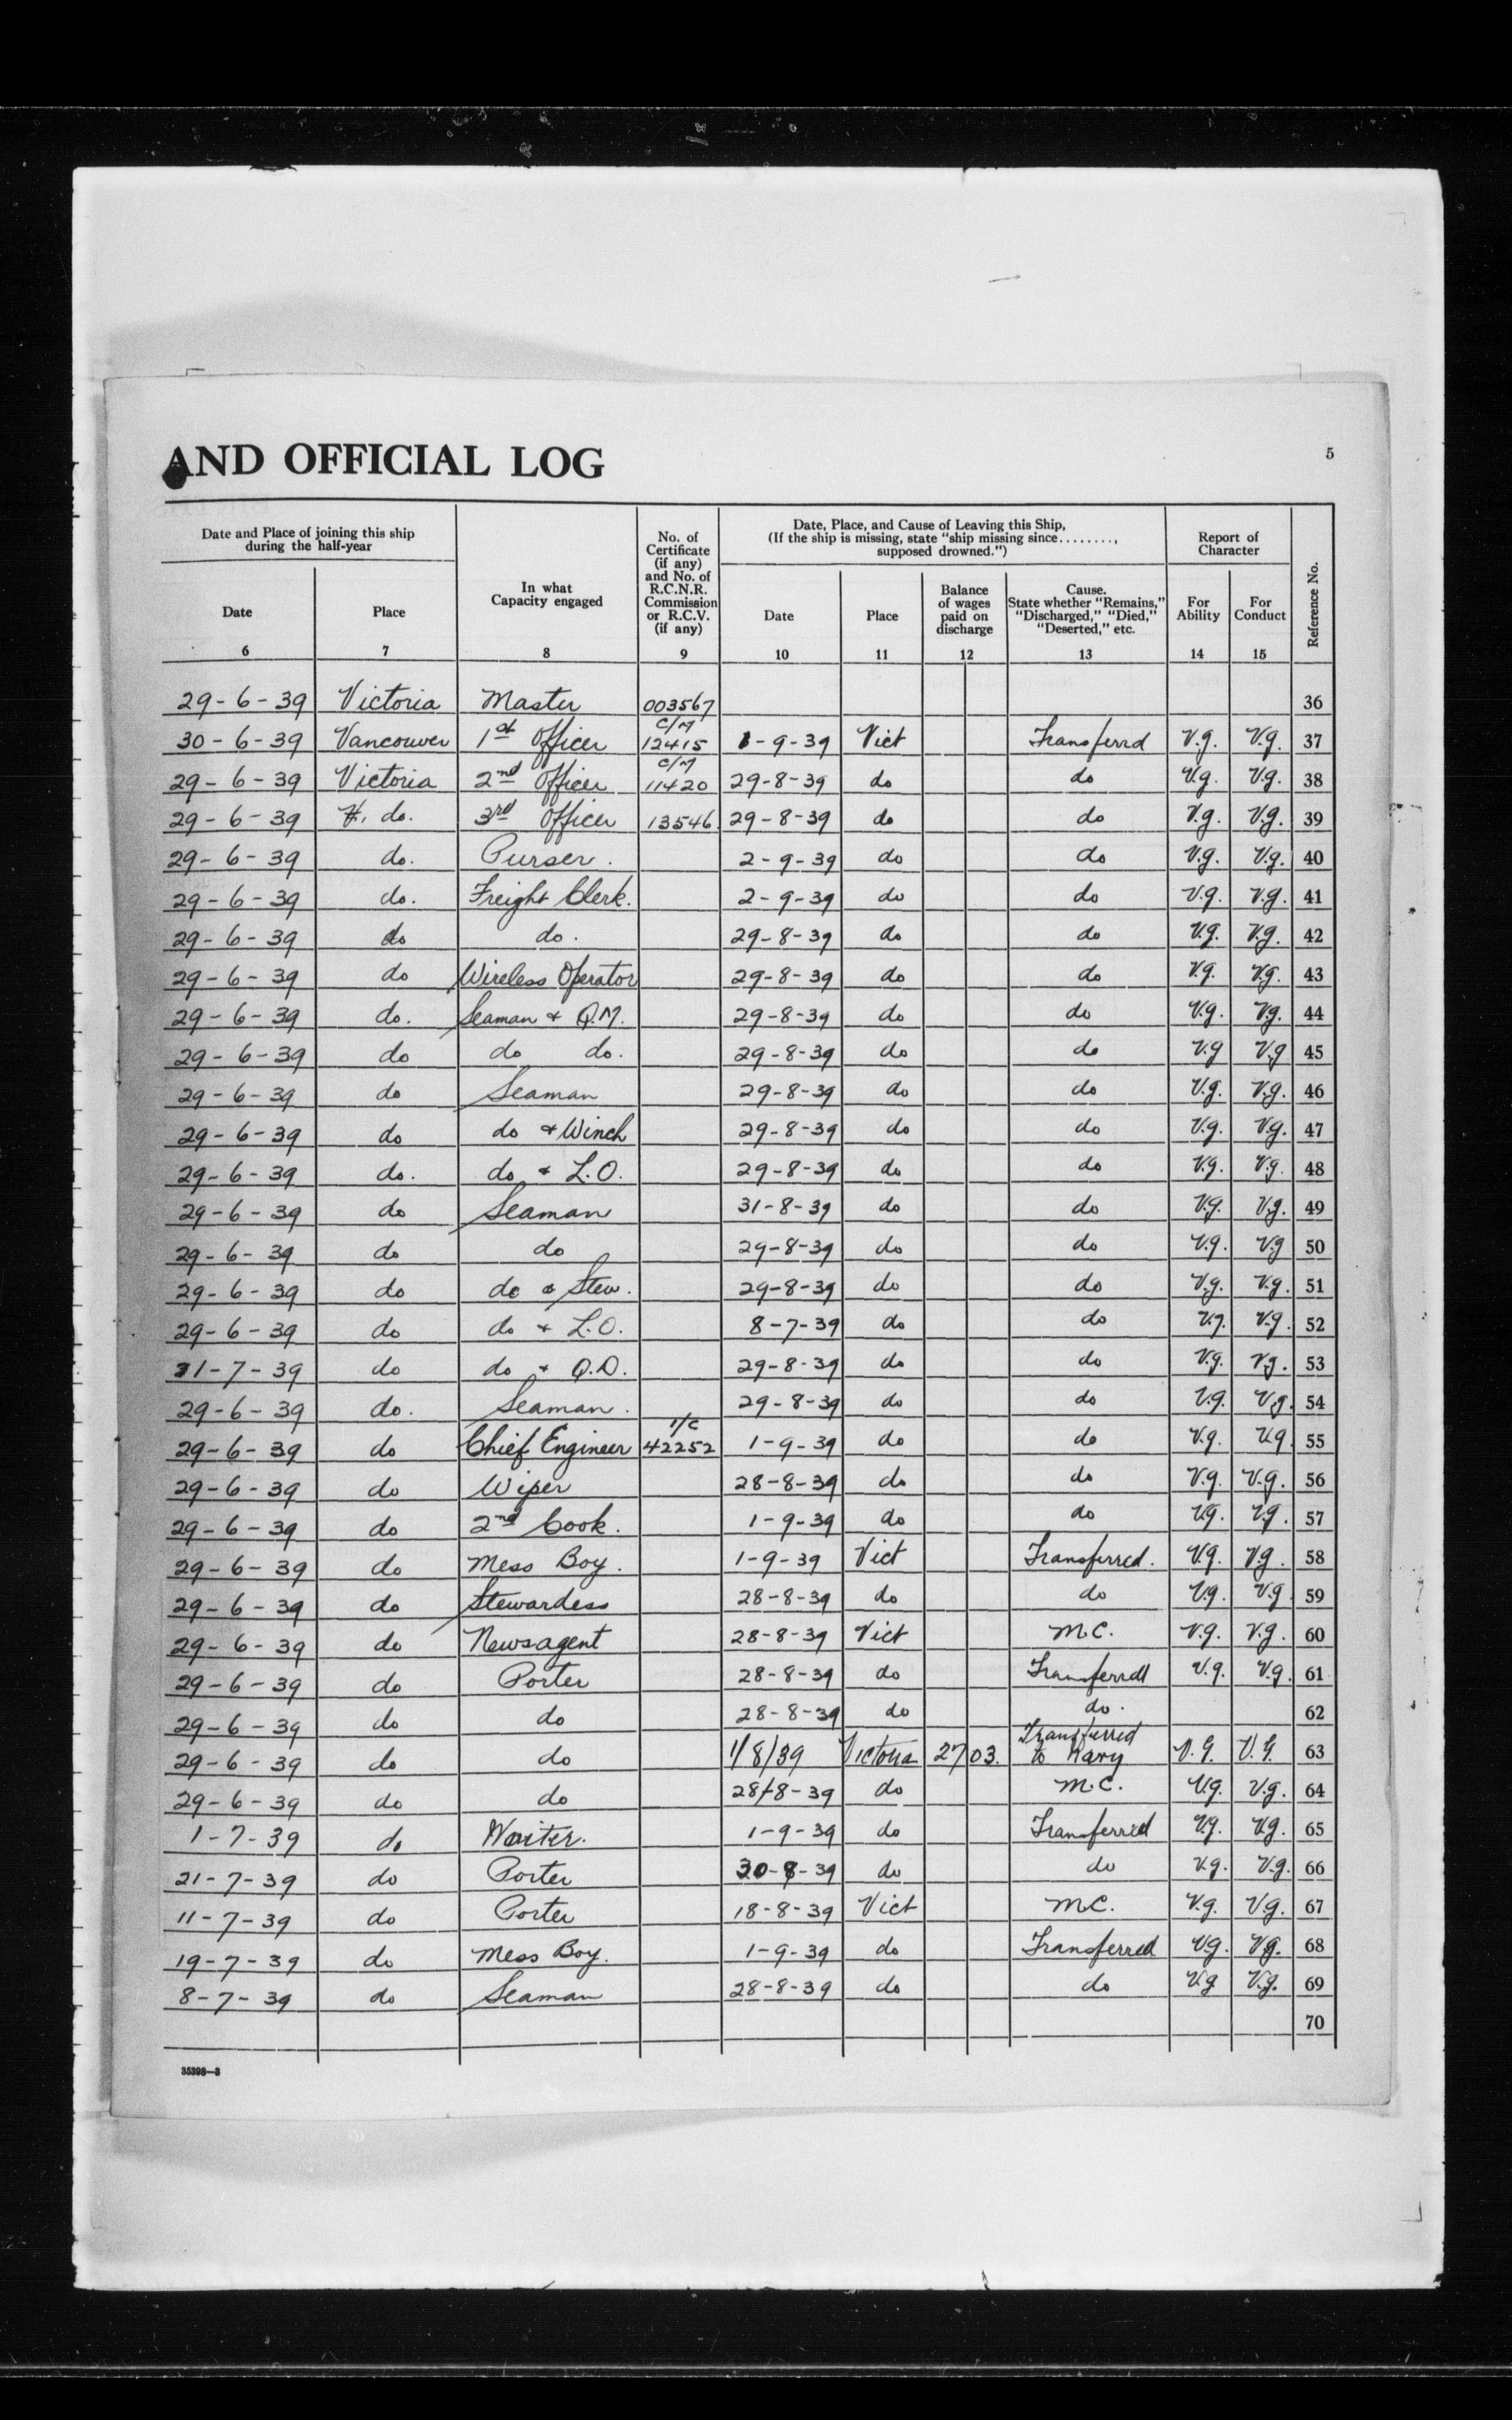 AND OFFICIAL LOG
5
Date and Place of joining this ship during the half-year
In what Capacity engaged
No. of Certificate (if any) and No. of R.C.N.R. Commission or R.C.V. (if any)
Date, Place, and Cause of Leaving this Ship, (If the ship is missing, state "ship missing since........, supposed drowned.")
Report of Character
Reference No.
Date Place Date Place Balance of wages paid on discharge Cause. State whether "Remains," "Discharged," "Died," "Deserted," etc. For Ability For Conduct
6 7 8 9 10 11 12 13 14 15
29-6-39 Victoria Master 003567 36
30-6-39 Vancouver 1st Officer C/M 12415 1-9-39 Vict Transferrd V.g. V.g. 37
29-6-39 Victoria 2nd Officer C/M 11420 29-8-39 do do V.g. V.g. 38
29-6-39 do. 3rd Officer 13546 29-8-39 do do V.g. V.g. 39
29-6-39 do. Purser. 2-9-39 do do V.g. V.g. 40
29-6-39 do. Freight Clerk. 2-9-39 do do V.g. V.g. 41
29-6-39 do do. 29-8-39 do do V.g. V.g. 42
29-6-39 do Wireless Operator 29-8-39 do do V.g. V.g. 43
29-6-39 do. Seaman & Q.M. 29-8-39 do do V.g. V.g. 44
29-6-39 do do do. 29-8-39 do do V.g V.g 45
29-6-39 do Seaman 29-8-39 do do V.g. V.g. 46
29-6-39 do do & Winch 29-8-39 do do V.g. V.g. 47
29-6-39 do. do & L.O. 29-8-39 do do V.g. V.g. 48
29-6-39 do Seaman 31-8-39 do do V.g. V.g. 49
29-6-39 do do 29-8-39 do do V.g. V.g 50
29-6-39 do do & Stew. 29-8-39 do do V.g. V.g. 51
29-6-39 do do & L.O. 8-7-39 do do V.g. V.g. 52
1-7-39 do do & Q.D. 29-8-39 do do V.g. V.g. 53
29-6-39 do. Seaman. 29-8-39 do do V.g. V.g. 54
29-6-39 do Chief Engineer 1/C 42252 1-9-39 do do V.g. V.g. 55
29-6-39 do Wiper 28-8-39 do do V.g. V.g. 56
29-6-39 do 2nd Cook. 1-9-39 do do V.g. V.g. 57
29-6-39 do Mess Boy. 1-9-39 Vict Transferred. V.g. V.g. 58
29-6-39 do Stewardess 28-8-39 do do V.g. V.g 59
29-6-39 do Newsagent 28-8-39 Vict M.C. V.g. V.g. 60
29-6-39 do Porter 28-8-39 do Transferred V.g. V.g. 61
29-6-39 do do 28-8-39 do do. 62
29-6-39 do do 1/8/39 Victoria 27 03. Transferred to Navy V.G. V.G. 63
29-6-39 do do 28-8-39 do M.C. V.g. V.g. 64
1-7-39 do Waiter. 1-9-39 do Transferred V.g. V.g. 65
21-7-39 do Porter 30-8-39 do do V.g. V.g. 66
11-7-39 do Porter 18-8-39 Vict M.C. V.g. V.g. 67
19-7-39 do Mess Boy. 1-9-39 do Transferred V.g. V.g. 68
8-7-39 do Seaman 28-8-39 do do V.g V.g. 69
70
35398—3